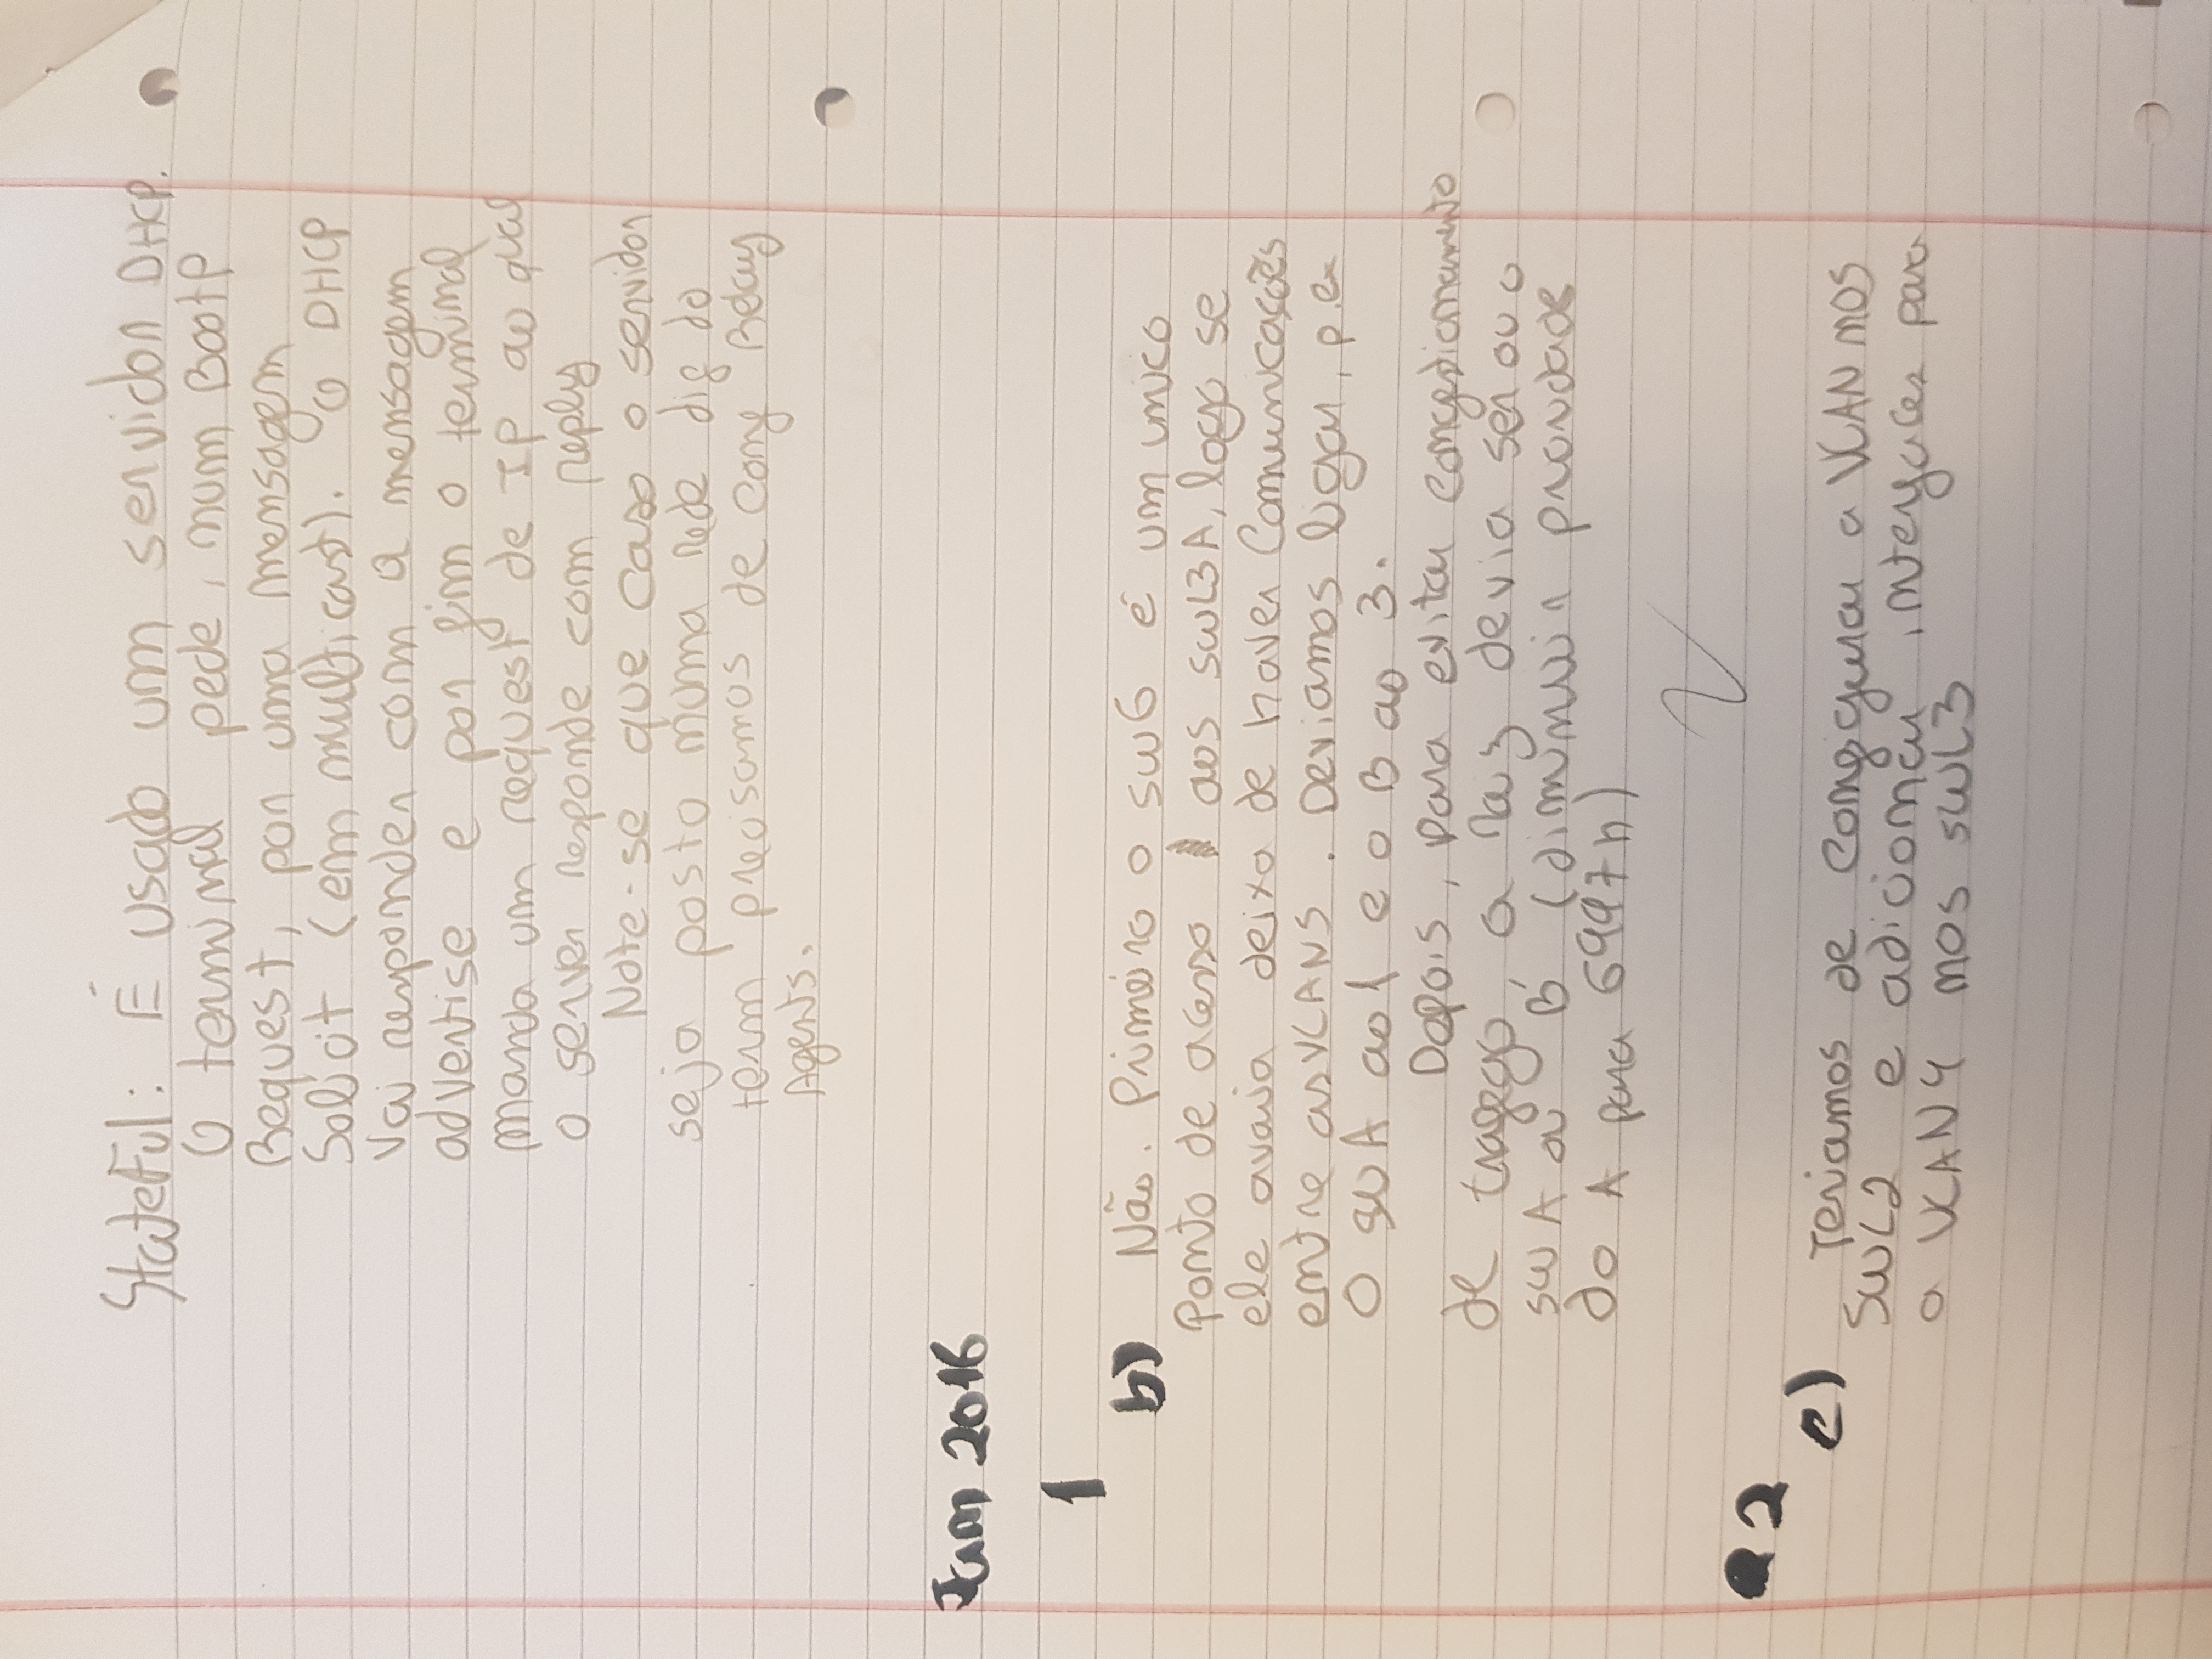 Stateful: É usado um servidor DHCP.
O terminal pede, num BootP
Request, por uma mensagem
Solicit (em multicast). O DHCP
Vai responder com a mensagem
advertise e por fim o terminal
manda um request de IP ao qual
o server responde com reply
Note-se que caso o servidor
seja posto numa rede dif do
term precisamos de conf Relay
Agents.
Jun 2016
1
b) Não. Primeiro o SW6 é um unico
ponto de acesso aos SWL3A, logo se
ele avaria deixa de haver Comunicações
entre as VLANS. Deviamos ligar, p.ex
O SWA ao 1 e o B ao 3.
Depois, para evitar congestionamento
de trafego, a raiz devia ser ou o
SW A ou B (diminuir prioridade
do A para 6997h)
2
c) Teriamos de configurar a VLAN nos
SWL2 e adicionar interfaces para
a VLAN4 nos SWL3